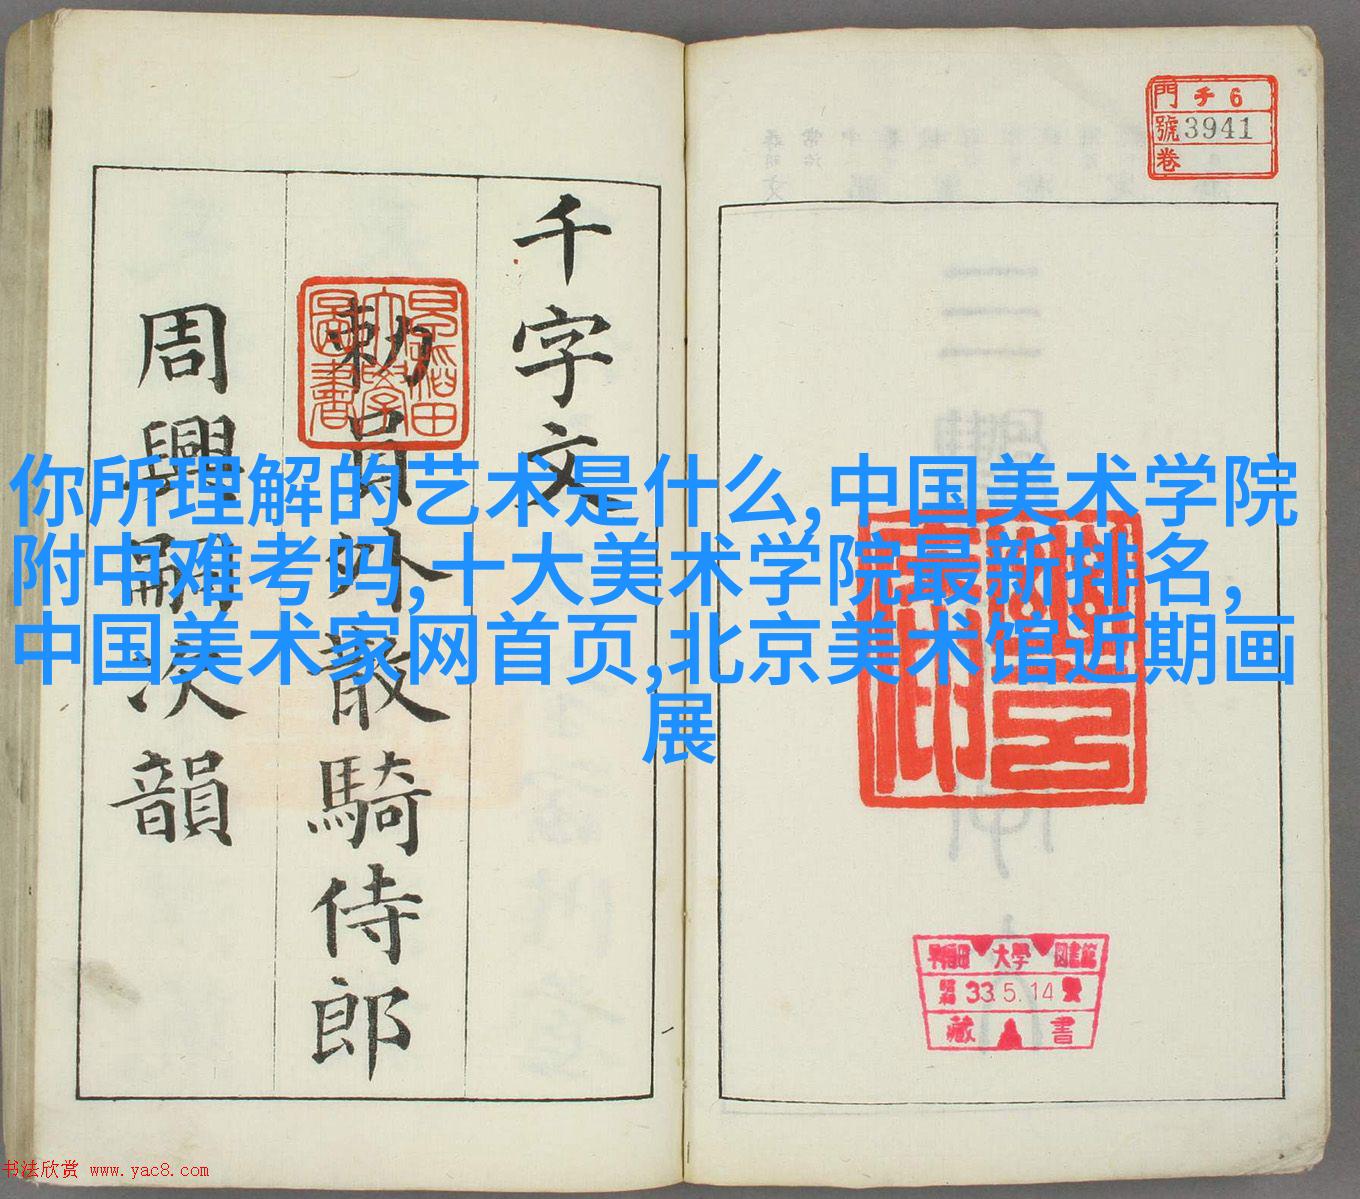 你所理解的艺术是什么,中国美术学院
附中难考吗,十大美术学院最新排名,
中国美术家网首页,北京美术馆近期画
展
門 チ6
號 3941
卷
千字文
勅員外散騎侍郎
周興嗣次韻
早稻田大學圖書
早稲田 大學 図書館
昭和 33.5.14
藏書
书法欣赏 www.yac8.com